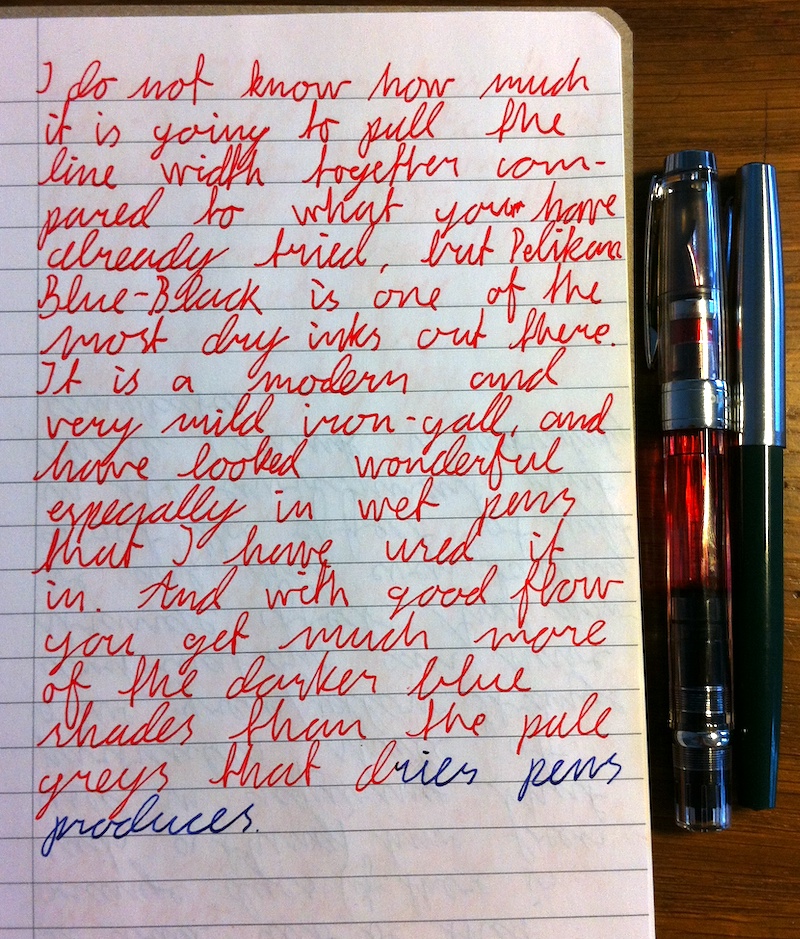 I do not know how much
it is going to pull the
line width together com-
pared to what your have
already tried, but Pelikan
Blue-Black is one of the
most dry inks out there.
It is a modern and
very mild iron-gall, and
have looked wonderful
especially in wet pens
that I have used it
in. And with good flow
you get much more
of the darker blue
shades than the pale
greys that dries pens
produces.